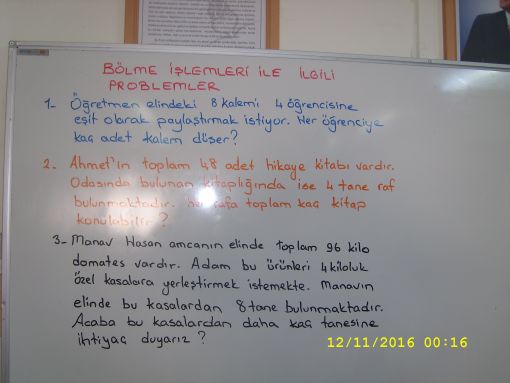 BÖLME İŞLEMLERİ İLE İLGİLİ
PROBLEMLER
1- Öğretmen elindeki 8 kalemi 4 öğrencisine
eşit olarak paylaştırmak istiyor. Her öğrenciye
kaç adet kalem düşer?
2- Ahmet'in toplam 48 adet hikaye kitabı vardır.
Odasında bulunan kitaplığında ise 4 tane raf
bulunmaktadır. her rafa toplam kaç kitap
konulabilir?
3- Manav Hasan amcanın elinde toplam 96 kilo
domates vardır. Adam bu ürünleri 4 kiloluk
özel kasalara yerleştirmek istemekte. Manavın
elinde bu kasalardan 8 tane bulunmaktadır.
Acaba bu kasalardan daha kaç tanesine
ihtiyaç duyarız?
12/11/2016 00:16